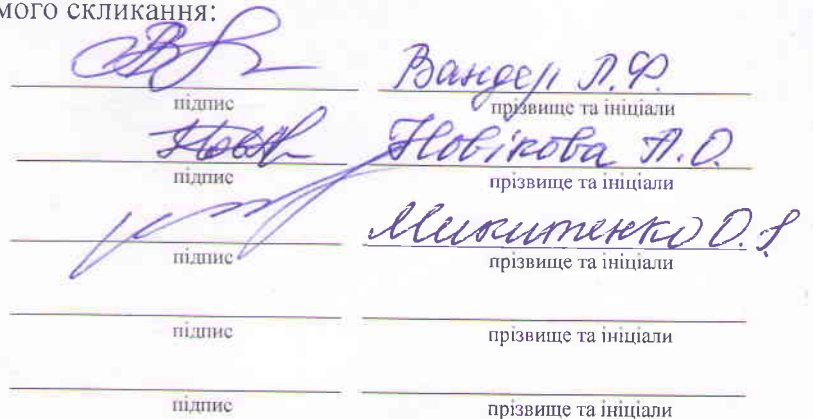 мого скликання:
Вандер Л.Ф.
підпис прізвище та ініціали
Новікова А.О.
підпис прізвище та ініціали
Микитенко О.
підпис прізвище та ініціали
підпис прізвище та ініціали
підпис прізвище та ініціали